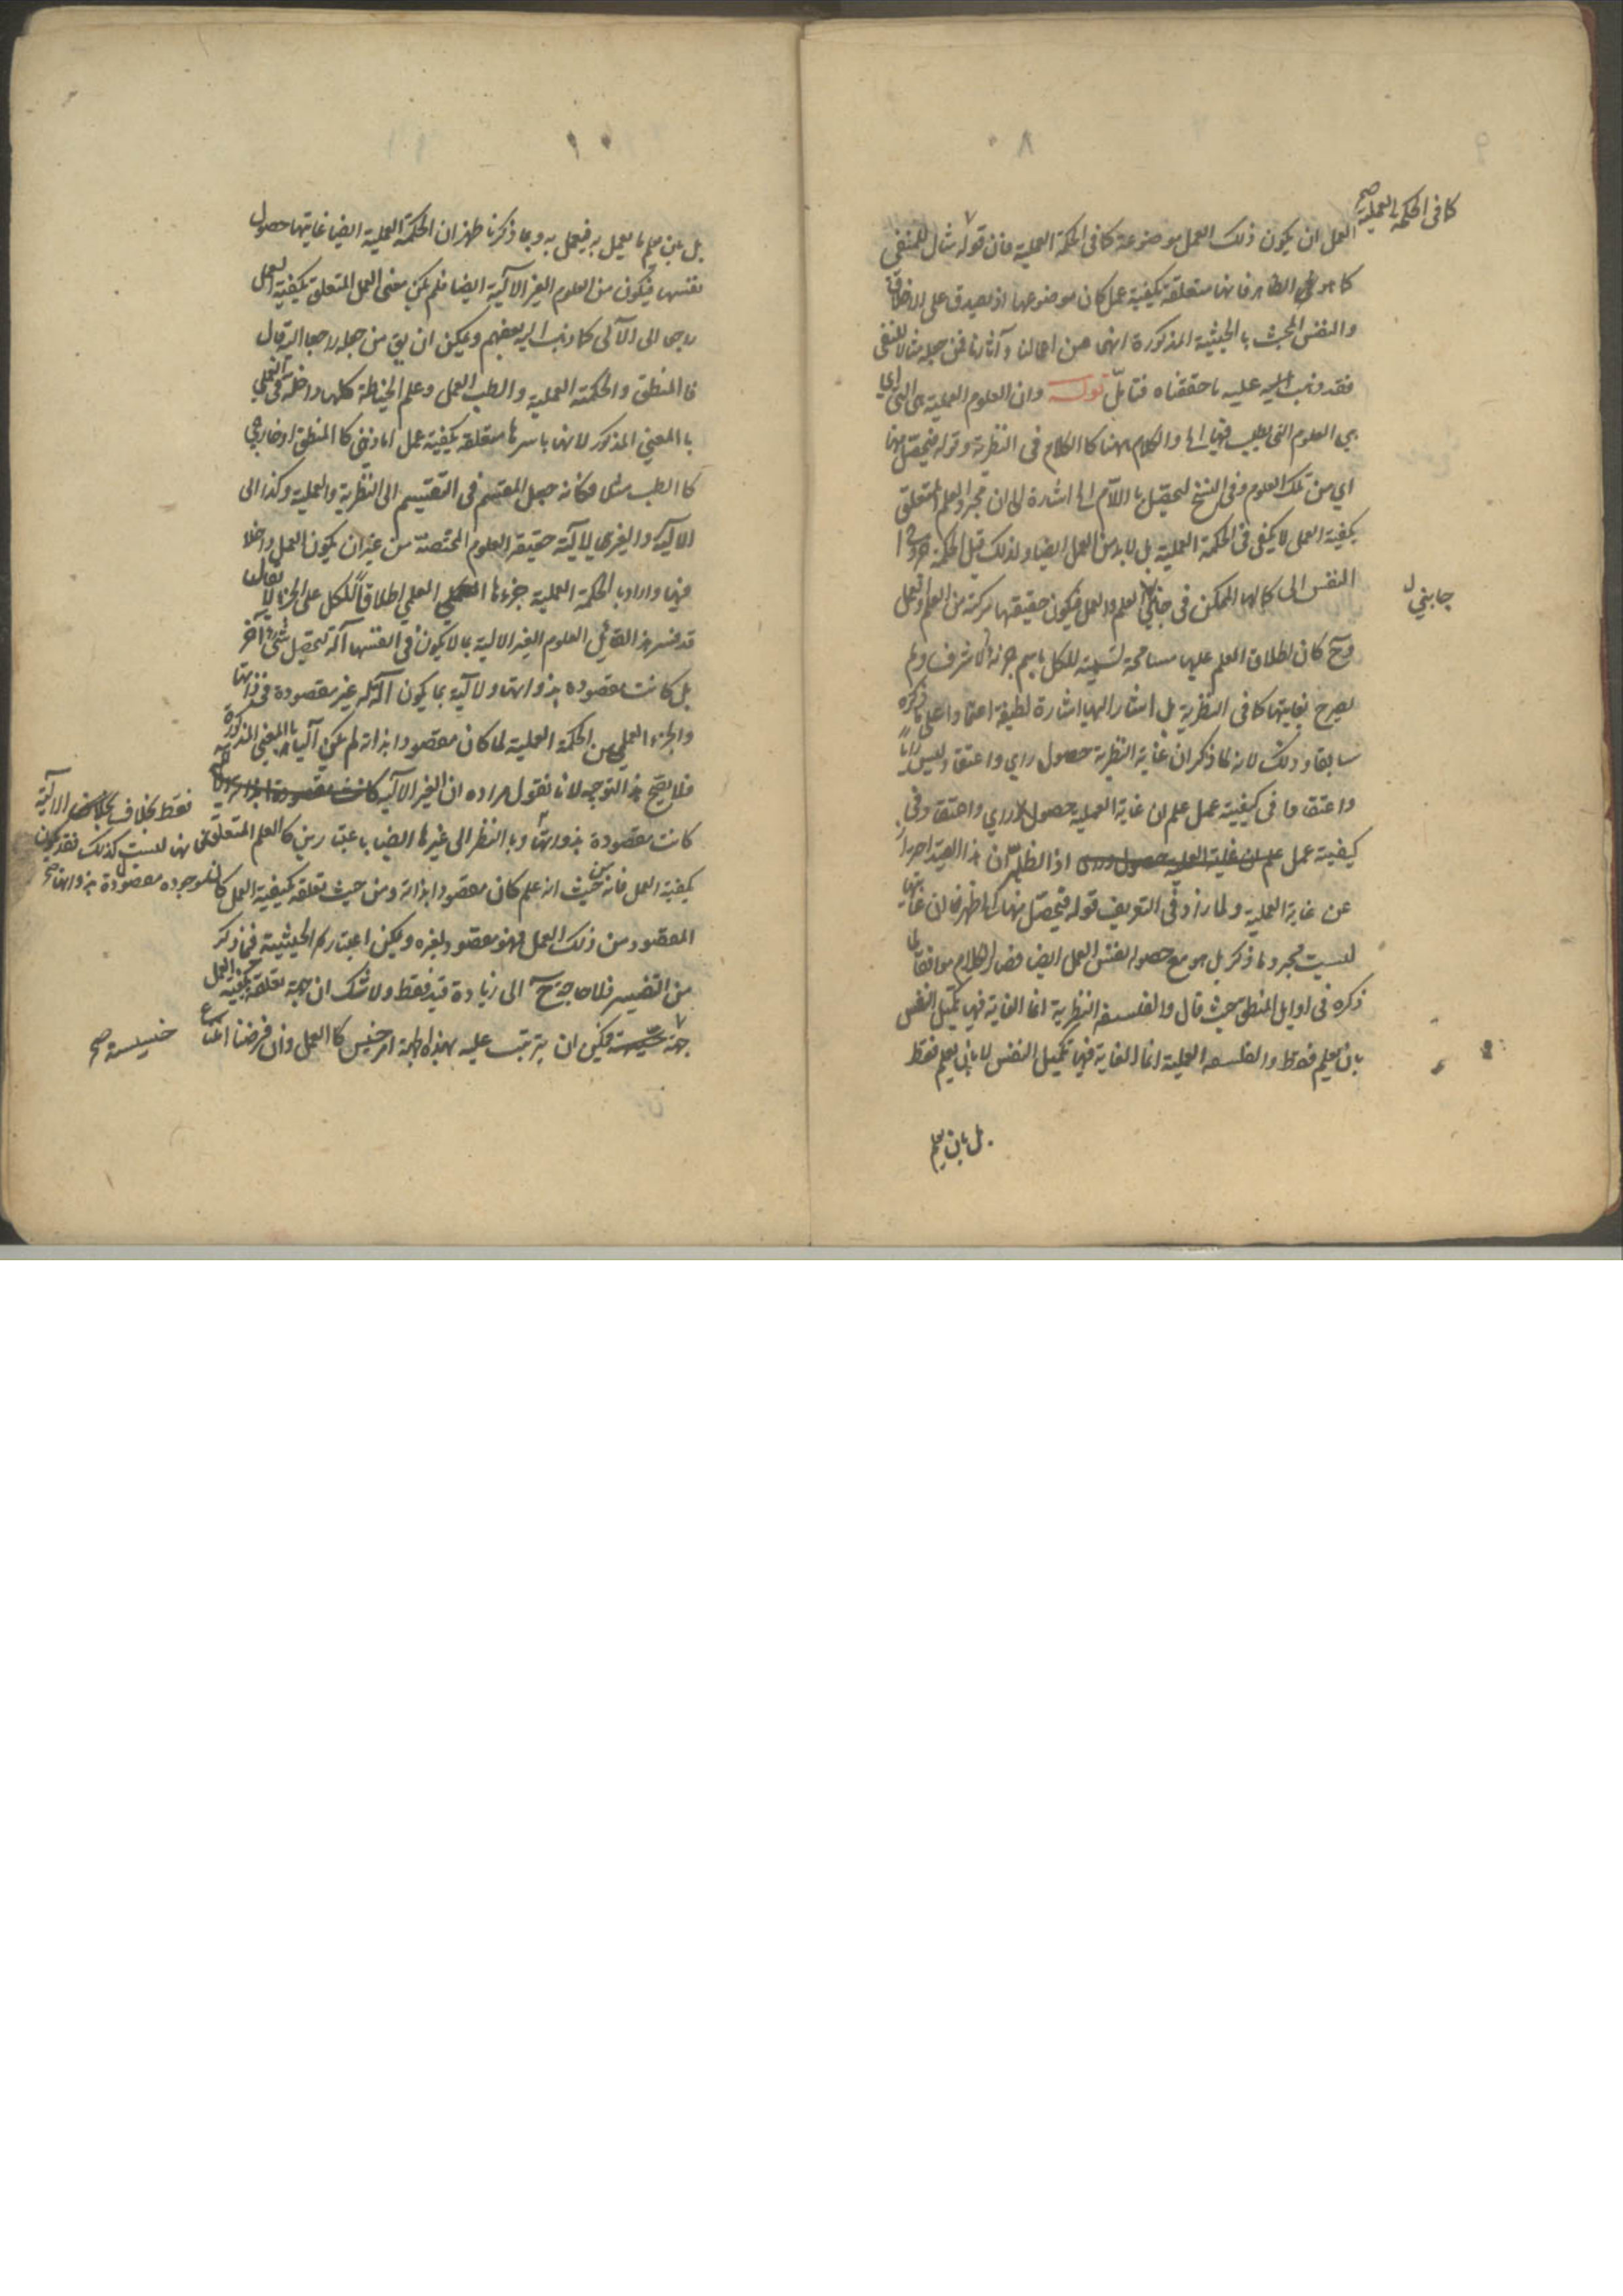 ٨
كما فى الحكمة العملية صح
العمل ان يكون ذلك العمل موضوعه كما فى الحكمة العملية فان قوله مثال للمنفي
كما هو الظاهر فانها متعلقة بكيفية عمل كان موضوعها اذ يصدق على الاخلاق
والنفس بالحيثية المذكورة انهى من اعمالنا وآثارنا فمن جعله مثالا للنفى
فقد ذهب عليه ما حققناه فتأمل قوله وان العلوم العملية هى التى اى
هي العلوم التى يطلب فيها اه والكلام ههنا كالكلام فى النظرية وقوله فيحصل منها
اي من تلك العلوم وفى النسخ ليحصل باللام اه اشارة الى ان مجرد العلم المتعلق
بكيفية العمل لا يكفى فى الحكمة العملية بل لا بد من العمل ايضا ولذلك قيل الحكمة خروج
النفس الى كمالها الممكن فى جانبي العلم والعمل فيكون حقيقتها مركبة من العلم والعمل
جانبي ل
وح كان اطلاق العلم عليها مسامحة تسمية للكل باسم جزئه الاشرف ولم
يصرح بغايتها كما فى النظرية بل اشار اليها اشارة لطيفة اعتمادا على ما ذكره
سابقا وذلك لانه لما ذكر ان غاية النظرية حصول راي واعتقاد ليس رايا
واعتقادا فى كيفية عمل علم ان غاية العملية حصول راي واعتقاد فى
كيفية عمل علم ان غاية العملية حصول راى اذ الظاهر ان هذا القيد احترازا
عن غاية العملية ولما زاد فى التعريف قوله فيحصل منها اه ظهر ان غايتها
ليست مجرد ما ذكر بل هو مع حصول نفس العمل ايضا فصار الكلام موافقا لما
ذكره فى اوايل المنطق حيث قال والفلسفة النظرية انما الغاية فيها تكميل النفس
بان يعلم فقط والفلسفة العملية انما الغاية فيها تكميل النفس لا بان يعلم فقط
بل بان يعلم
٩
بل بان يعلم ما يعمل به فيعمل به وبما ذكرنا ظهر ان الحكمة العملية ايضا غايتها حصول
نفسها فيكون من العلوم الغير الآلية ايضا فلم يكن معنى العمل المتعلق بكيفية العمل
راجعا الى الآلى كما ذهب اليه بعضهم ويمكن ان يق من جعله راجعا اليه قال
فالمنطق والحكمة العملية والطب العملى وعلم الخياطة كلها داخلة فى العملى
بالمعنى المذكور لانها باسرها متعلقة بكيفية عمل اما ذهنى كالمنطق او خارجى
كالطب مثلا فكانه جعل المقسم فى التقسيم الى النظرية والعملية وكذا الى
الآلية والغير الآلية حقيقة العلوم المختصة من غير ان يكون العمل داخلا
فيها واراد بالحكمة العملية جزءها العلمي اطلاقا للكل على الجزء لا يقال
قد فسر هذا القائل العلوم الغير الآلية بما لا يكون فى انفسها آلة لتحصيل شئ آخر
بل كانت مقصوده بذواتها والآلية بما يكون آلة له غير مقصودة فى ذواتها
والجزء العلمي من الحكمة العملية لما كان مقصودا بذاته لم يكن آليا بالمعنى المذكور
فلا يصح هذا التوجيه لانا نقول مراده ان الغير الآلية كانت مقصودة بذواتها
فقط بخلاف الآلية
كانت مقصودة بذواتها وبالنظر الى غيرها ايضا باعتبارين كالعلم المتعلق
فانها ليست كذلك فقد يكون
بكيفية العمل فانه من حيث انه علم كان مقصودا بذاته ومن حيث تعلقه بكيفية العمل كان
موجوده مقصودة بذواتها صح
المقصود من ذلك العمل فهو مقصود لغيره ويمكن اعتبار الحيثية فيما ذكر
من التفسير فلا حاجة ح الى زيادة قيد فقط ولا شك ان جهة تعلقه بكيفية العمل
جهة خسيسة فيمكن ان يترتب عليه بهذه الجهة امر خسيس كالعمل وان فرضنا
خسيسة صح